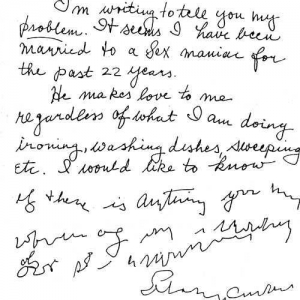 I'm writing to tell you my
problem. It seems I have been
married to a Sex maniac for
the past 22 years.
He makes love to me
regardless of what I am doing
ironing, washing dishes, sweeping
etc. I would like to know
if there is anything you my